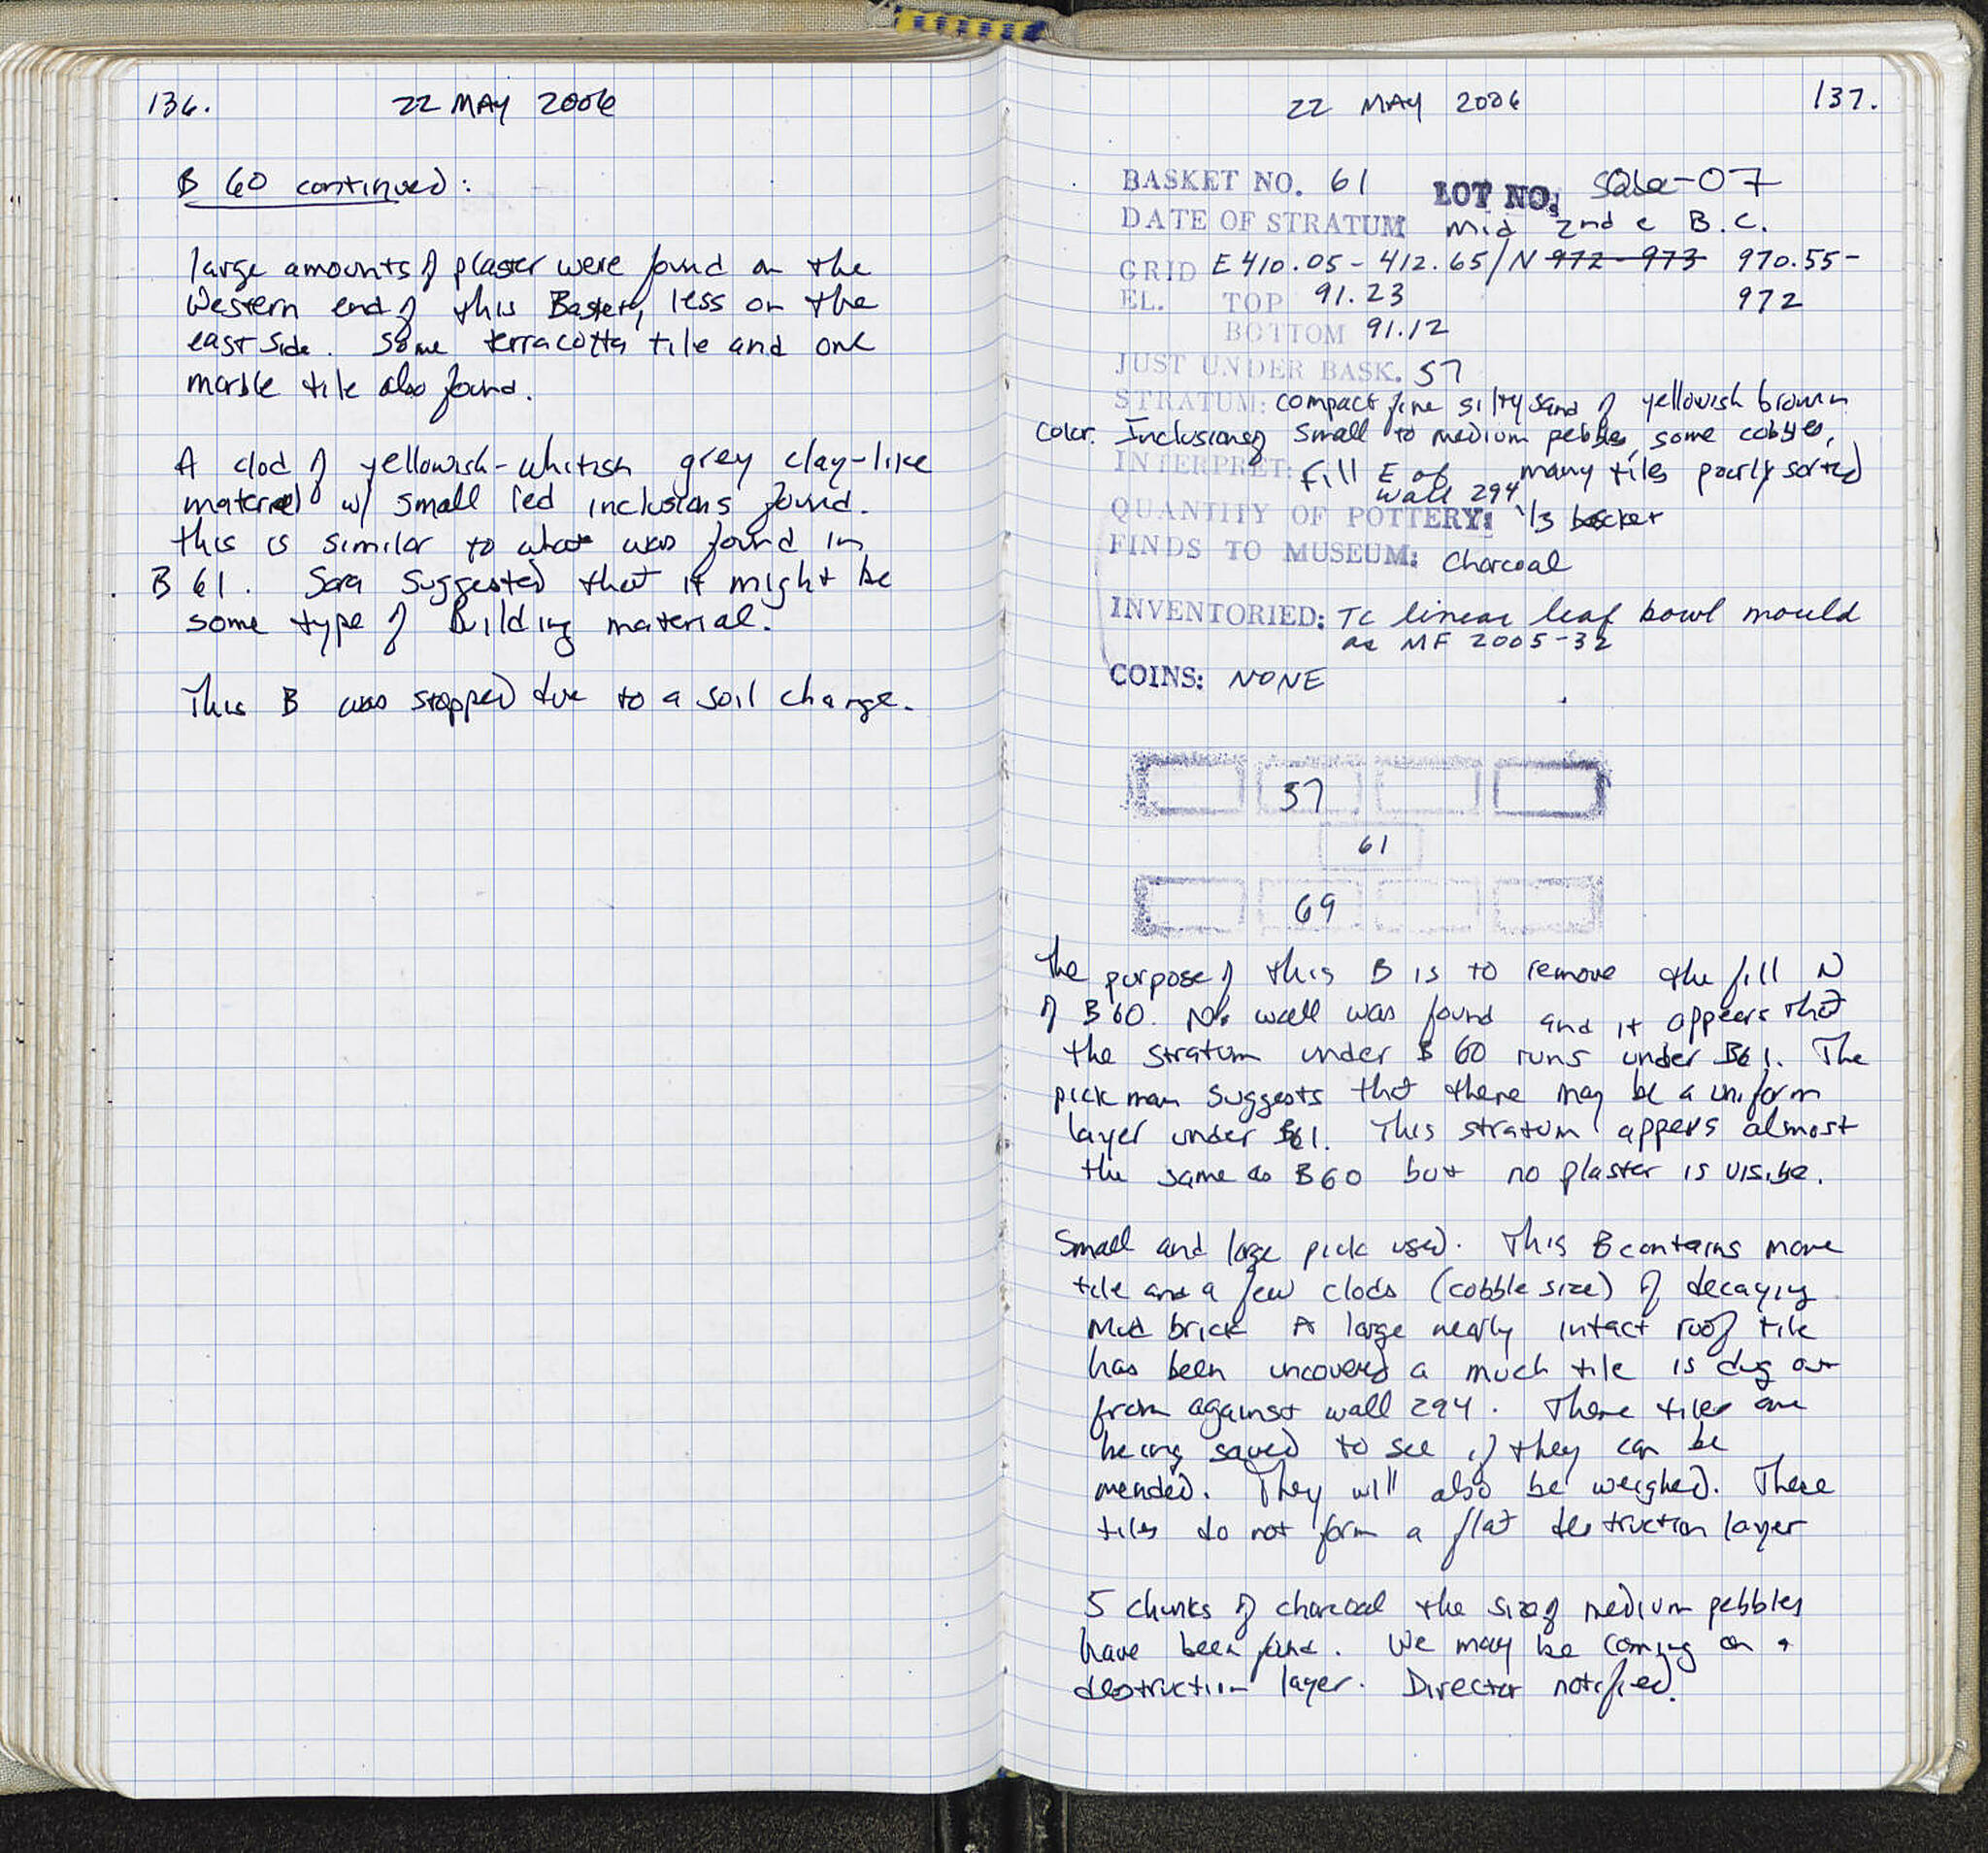 136. 22 MAY 2006
B 60 continued:
large amounts of plaster were found on the
Western end of this Basket, less on the
east side. Some terracotta tile and one
marble tile also found.
A clod of yellowish-whitish grey clay-like
material w/ small red inclusions found.
this is similar to what was found in
B 61. Sara suggested that it might be
some type of Building material.
This B was stopped due to a soil change.
22 MAY 2006 137.
BASKET NO. 61 LOT NO. -07
DATE OF STRATUM Mid 2nd c B.C.
GRID E 410.05 - 412.65/N 972-973 970.55-
EL. TOP 91.23 972
BOTTOM 91.12
JUST UNDER BASK. 57
STRATUM: compact fine silty sand of yellowish brown
color. Inclusions of small to medium pebbles, some cobbles,
INTERPRET: fill E of many tiles poorly sorted
wall 294
QUANTITY OF POTTERY: 1/3 basket
FINDS TO MUSEUM: Charcoal
INVENTORIED: TC linear leaf bowl mould
as MF 2005-32
COINS: NONE
57
61
69
The purpose of this B is to remove the fill N
of B 60. No wall was found and it appears that
the stratum under B 60 runs under B61. The
pick man suggests that there may be a uniform
layer under B61. This stratum appers almost
the same as B60 but no plaster is visible.
Small and large pick used. This B contains more
tile and a few clods (cobble size) of decaying
Mud brick A large nearly intact roof tile
has been uncovered a much tile is dug out
from against wall 294. These tiles are
being saved to see if they can be
mended. They will also be weighed. These
tiles do not form a flat destruction layer
5 chunks of charcoal the size of medium pebbles
have been found. We may be coming on a
destruction layer. Director notified.